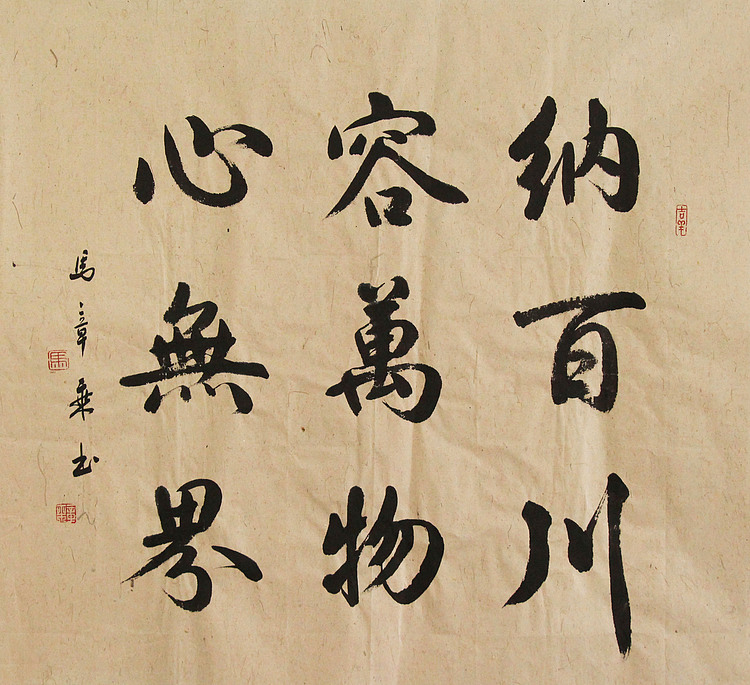 纳百川
容萬物
心無界
馬章乘书